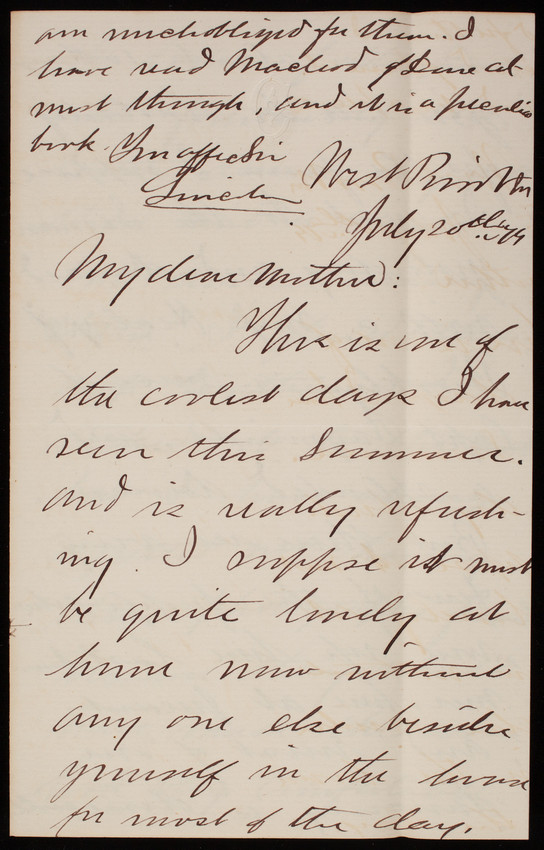 am much obliged for them. I
have read Macleod of Dare al
most through, and it is a peculiar
book. Your affec Son
Lincoln
West Point
July 20th
My dear Mother:
This is one of
the coolest days I have
seen this Summer.
and is really refresh-
ing. I suppose it must
be quite lonely at
home now without
any one else beside
yourself in the house
for most of the day.